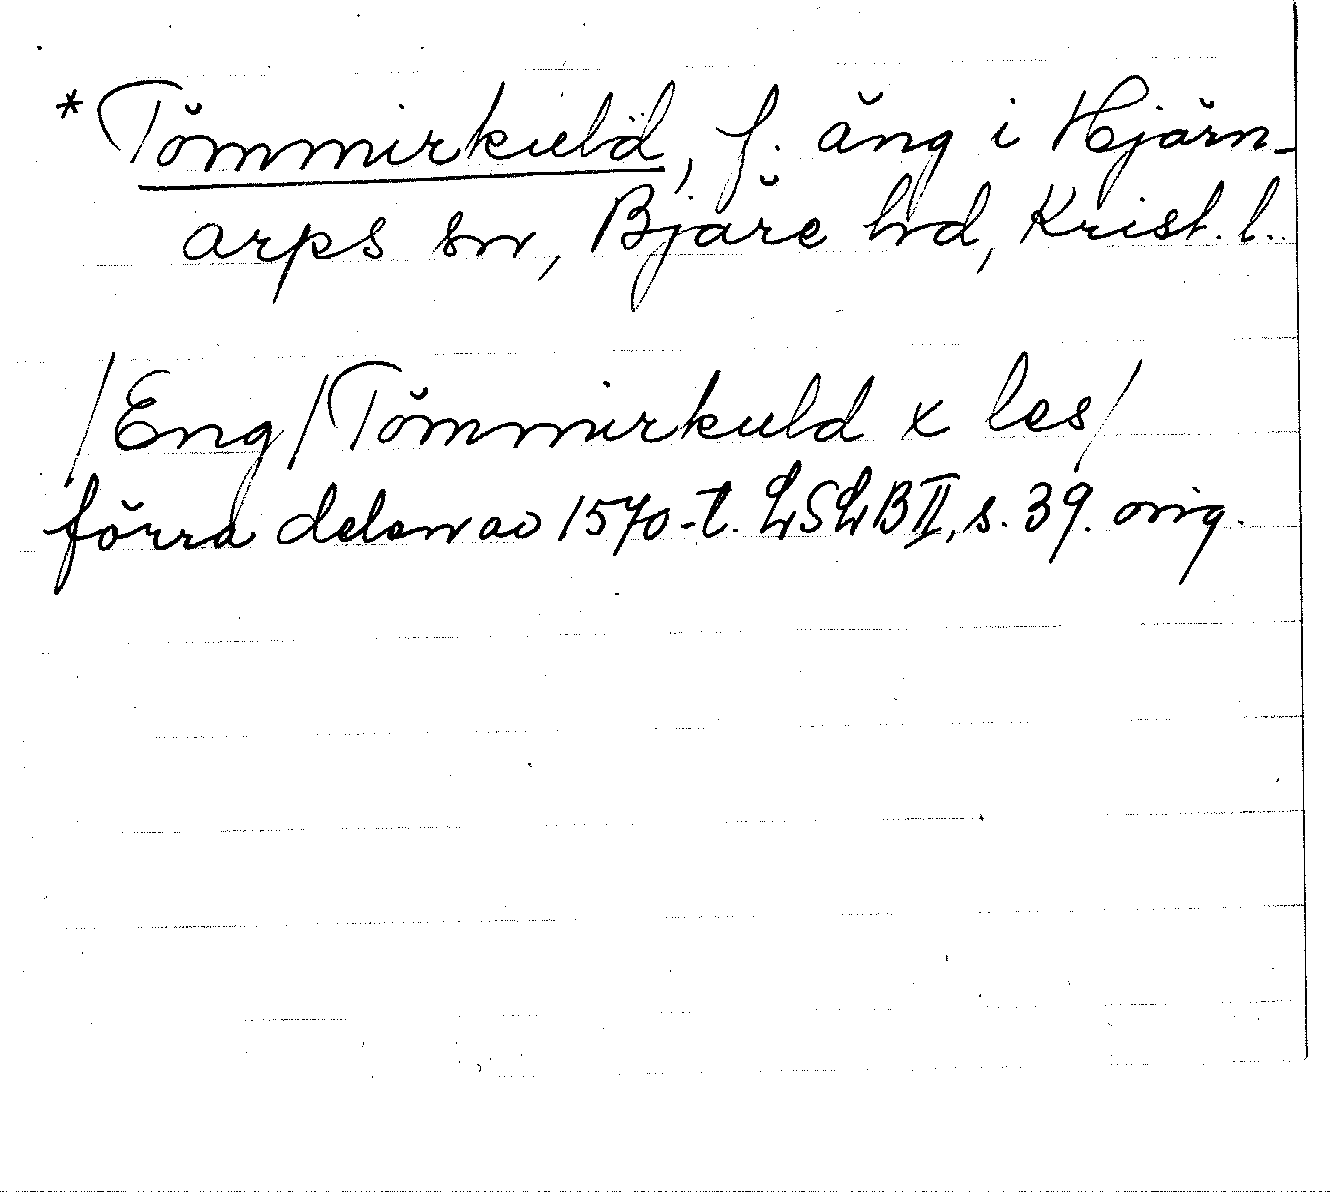 *Tömmirkuld, f. äng i Hjärn-
arps sn, Bjäre hd, Krist. l.
/Eng/Tömmirkuld x les/
förra delen av 1570-t. LSLB II, s. 39. orig.